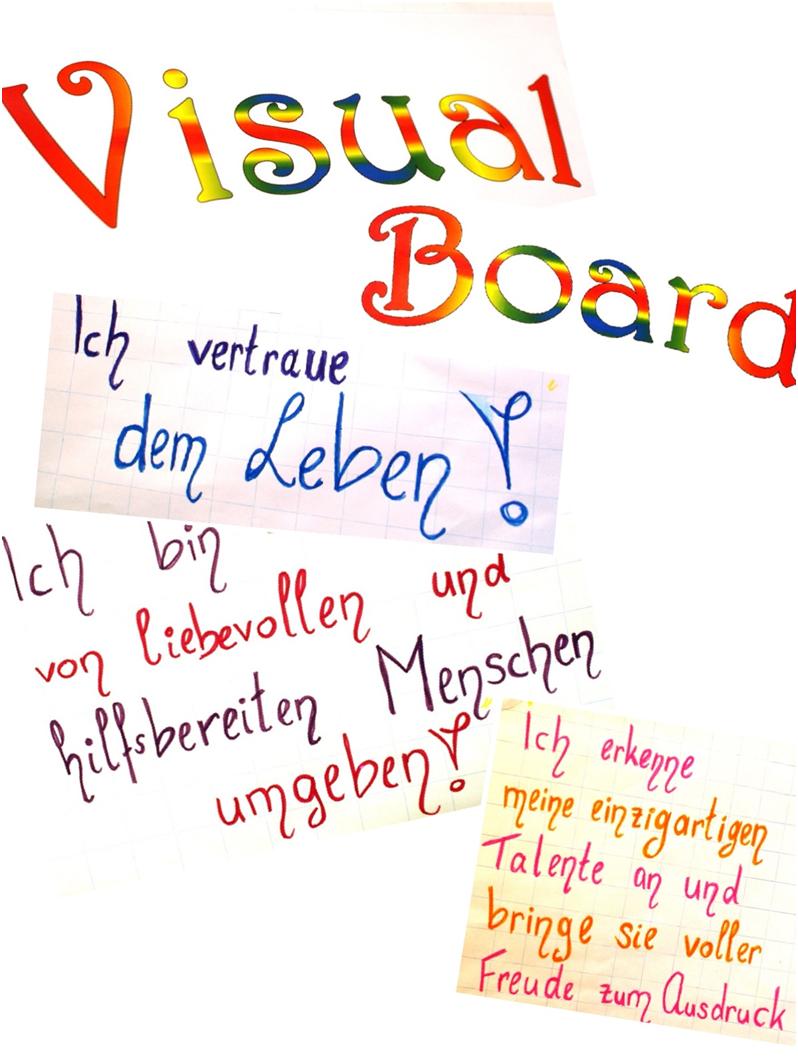 Visual
Board
Ich vertraue
dem Leben!
Ich bin
von liebevollen und
hilfsbereiten Menschen
umgeben!
Ich erkenne
meine einzigartigen
Talente an und
bringe sie voller
Freude zum Ausdruck